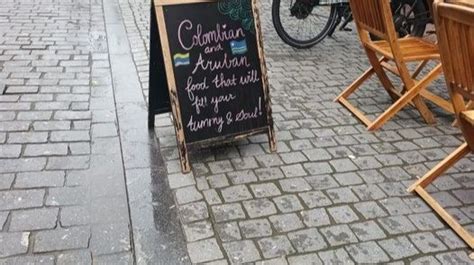 Colombian
and
Aruban
food that will
fill your
tummy & soul!